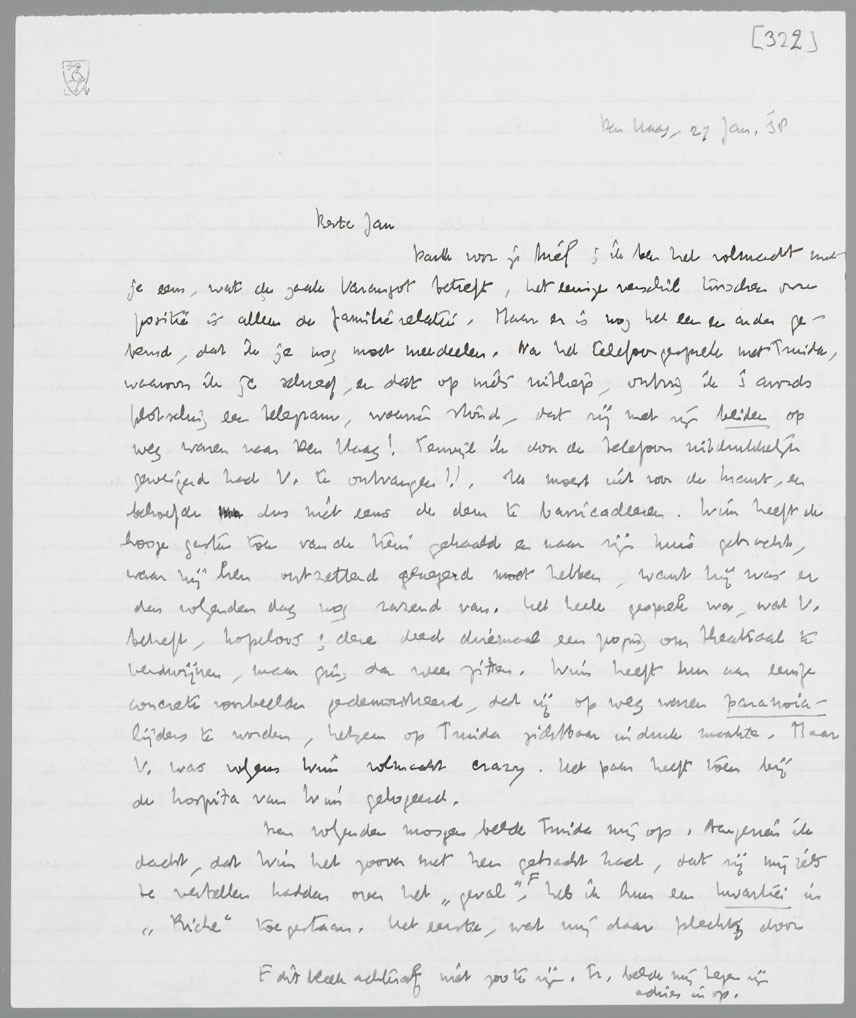 [322]
Den Haag, 27 Jan. '38
Beste Jan
Dank voor je brief; ik ben het volmaakt met
je eens, wat de zaak Varangot betreft, het eenige verschil tusschen onze
positie is alleen de familierelatie. Maar er is nog het een en ander ge-
beurd, dat ik je nog moet meedeelen. Na het telefoongesprek met Truida,
waarover ik je schreef, en dat op niets uitliep, ontving ik 's avonds
plotseling een telegram, waarin stond, dat zij met zijn beiden op
weg waren naar Den Haag! Terwijl ik door de telefoon uitdrukkelijk
geweigerd had V. te ontvangen!! Ik moest uit voor de krant, en
behoefde dus niet eens de deur te barricadeeren. Wim heeft de
hooge gasten toen van de trein gehaald en naar zijn huis gebracht,
waar hij hen ontzettend geneerd moet hebben, want hij was er
den volgenden dag nog razend van. Het heele gesprek was, wat V.
betreft, hopeloos; deze deed driemaal een poging om theatraal te
verdwijnen, maar ging dan weer zitten. Wim heeft hun aan eenige
concrete voorbeelden gedemonstreerd, dat zij op weg waren paranoia-
lijders te worden, hetgeen op Truida zichtbaar indruk maakte. Maar
V. was volgens Wim volmaakt crazy. Het paar heeft toen bij
de hospita van Wim gelogeerd.
Den volgenden morgen belde Truida mij op. Aangezien ik
dacht, dat Wim het zoover met hen gebracht had, dat zij mij iets
te vertellen hadden over het „geval", F heb ik hun een kwartier in
„Riche" toegestaan. Het eerste, wat mij daar plechtig door
F dit bleek achteraf niet zoo te zijn. Tr. belde mij tegen zijn
advies in op.